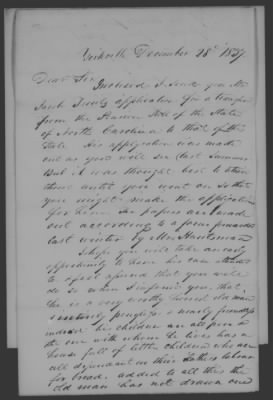 Yorkville December 28th 1837
Dear Sir Inclosed I send you Mr
Jacob application for a transfer
from the Pension Roll of the State
of North Carolina to that of this
State His application was made
out as you will see last Summer
But it was thought best to retain
them until you went on so that
you might make the application
for him. The papers are made
out according to a form forwarded
last winter by Mr Huntsman
I hope you will take an early
opportunity to have his case attended
to I feel assured that you will
do so when I inform you that
he is a very worthy honest old man
extremely poor &
indeed his children are all poor &
the one with whom he lives has a
house full of little children who are
all dependant on their Fathers labour
for bread. added to all this the
old man has not drawn one